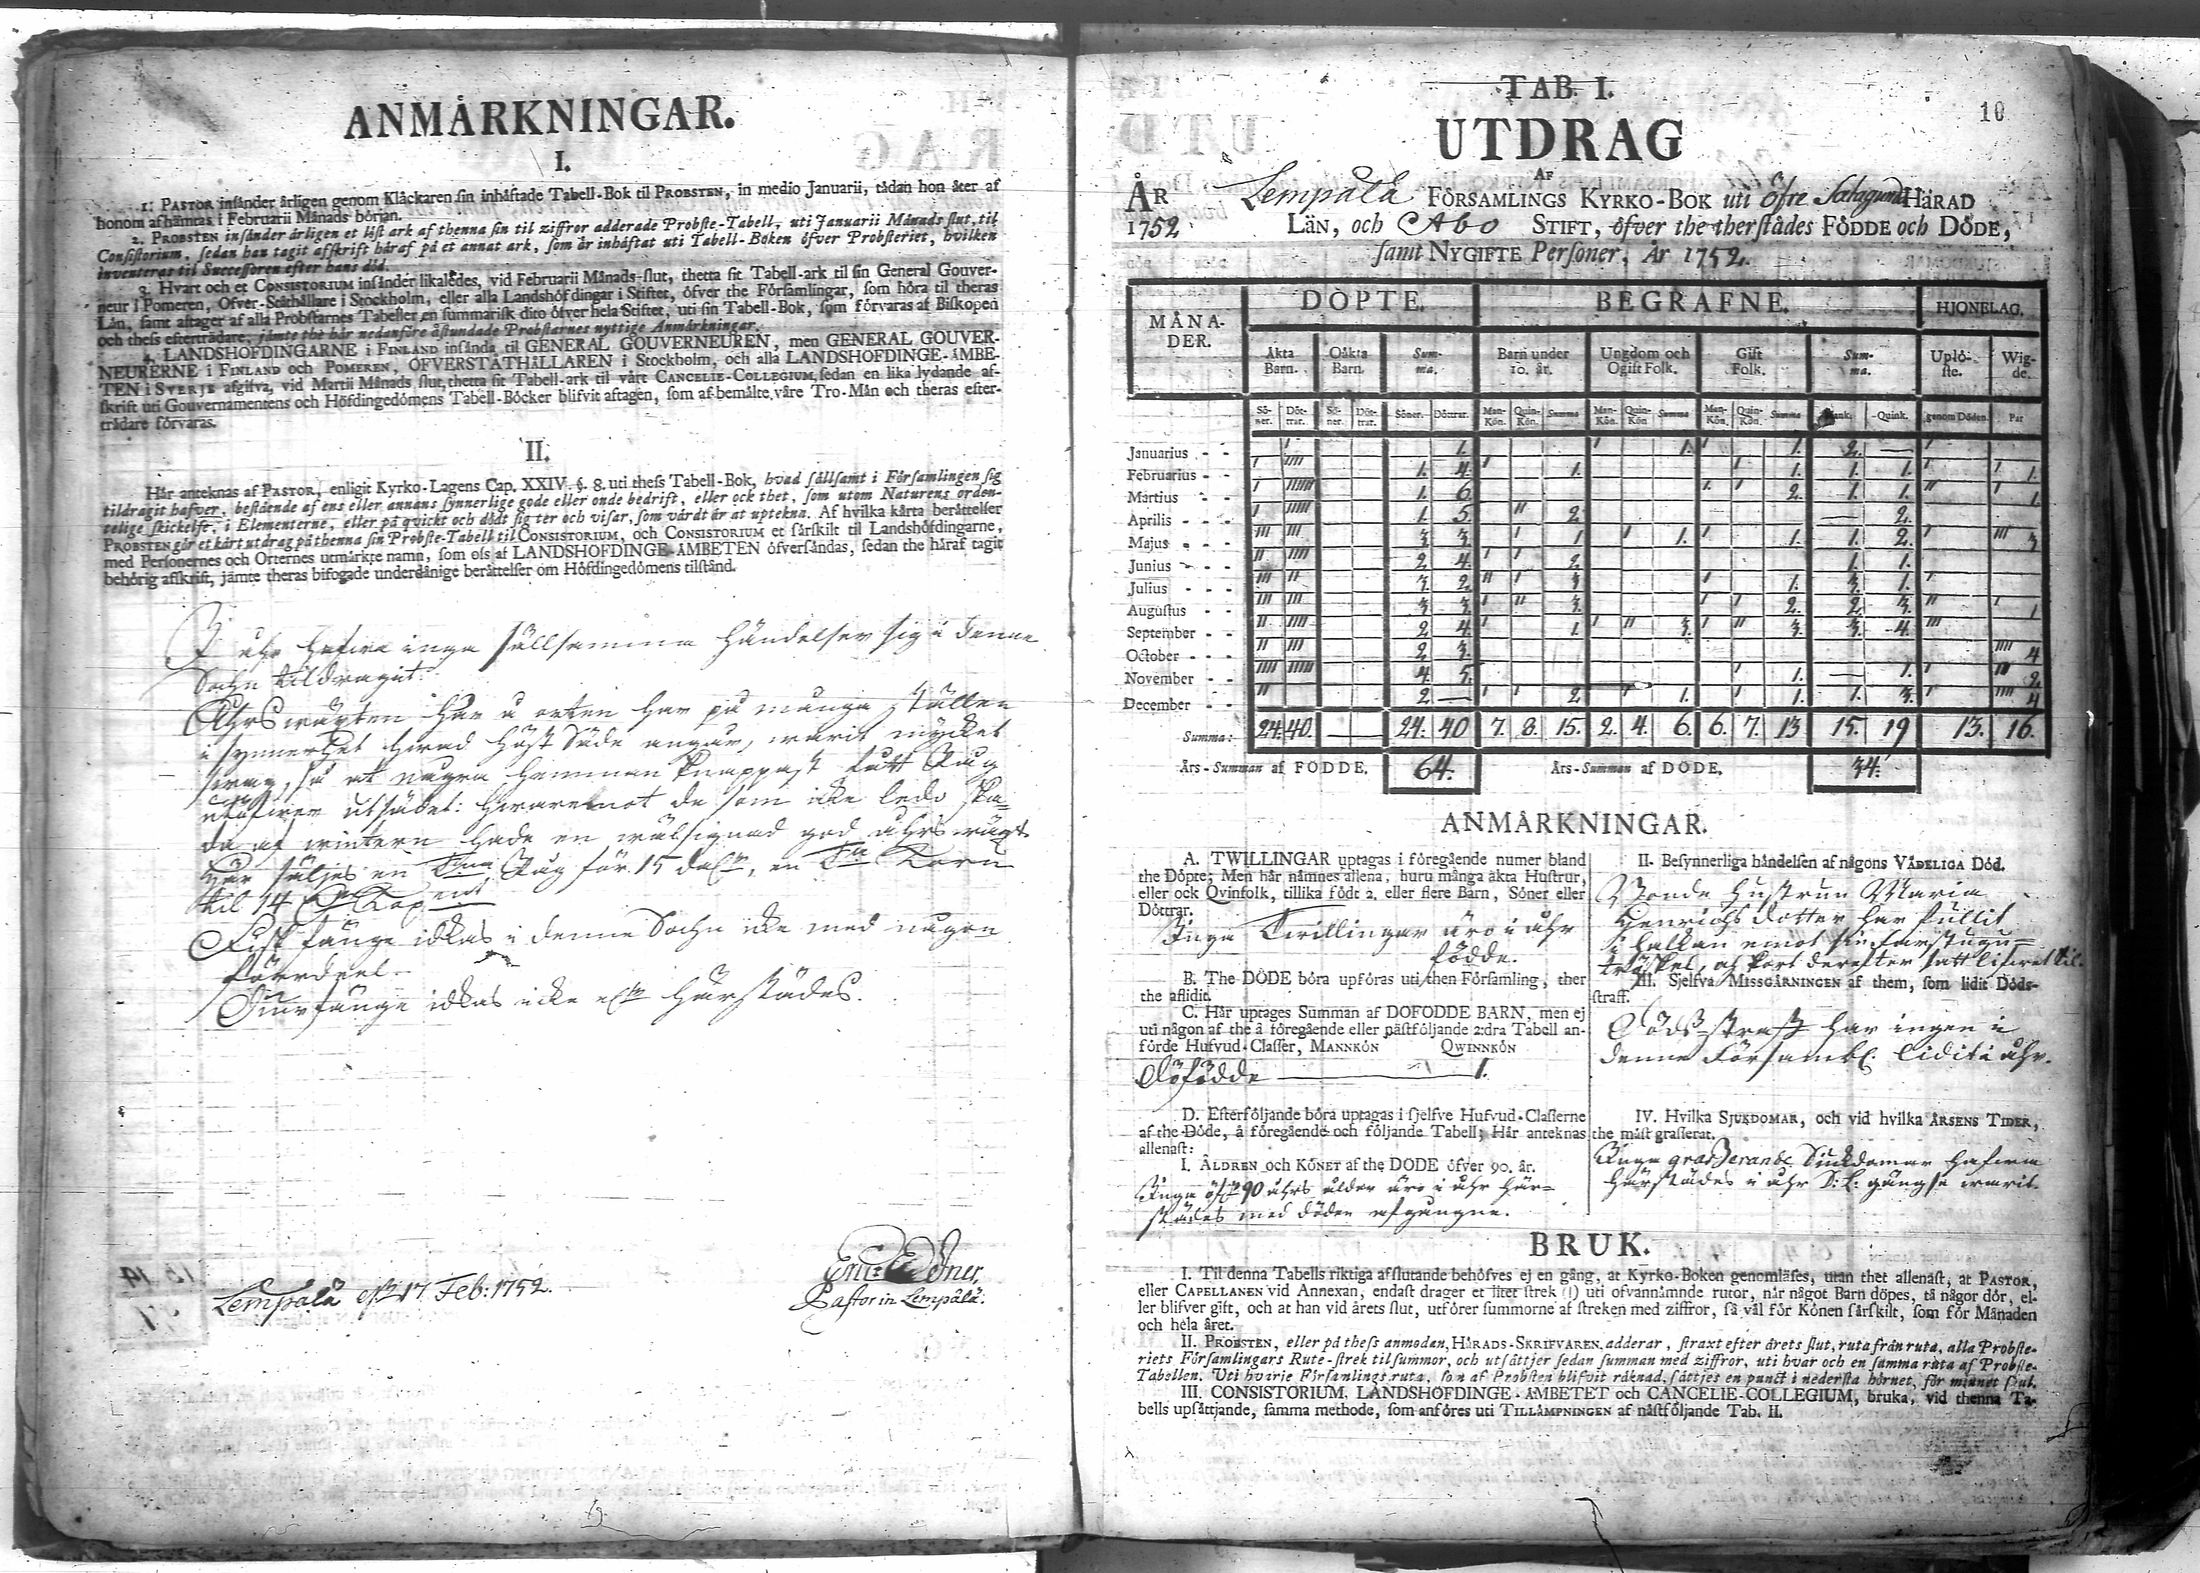 ANMÄRKNINGAR.
I.
1. PASTOR insänder årligen genom Klåckaren sin inhäftade Tabell-Bok til PROBSTEN, in medio Januarii, tådan hon åter af
honom afhämtas i Februarii Månads början.
2. PROBSTEN insänder årligen et löst ark af thenna sin til ziffror adderade Probste-Tabell, uti Januarii Månads slut, til
Consistorium, sedan han tagit affkrift häraf på et annat ark, som är inhäftat uti Tabell-Boken öfver Probsteriet, hvilken
inventeras til Successoren efter hans död.
3. Hvart och et CONSISTORIUM insänder likaledes, vid Februarii Månads-slut, thetta sit Tabell-ark til sin General Gouver-
neur i Pomeren, Öfver-Ståthållare i Stockholm, eller alla Landshöfdingar i Stiftet, öfver the Församlingar, som höra til theras
Län, samt aftager af alla Probstarnes Tabeller en summarisk dito öfver hela Stiftet, uti sin Tabell-Bok, som förvaras af Biskopen
och thess efterträdare, jämte the här nedanföre åstundade Probstarnes nyttige Anmärkningar.
4. LANDSHÖFDINGARNE i FINLAND insända til GENERAL GOUVERNEUREN, men GENERAL GOUVER-
NEURERNE i FINLAND och POMEREN, ÖFVERSTÅTHÅLLAREN i Stockholm, och alla LANDSHÖFDINGE-ÄMBE-
TEN i SVERJE afgifva, vid Martii Månads slut, thetta sit Tabell-ark til vårt CANCELIE-COLLEGIUM, sedan en lika lydande af-
skrift uti Gouvernamentens och Höfdingedömens Tabell-Böcker blifvit aftagen, som af bemälte våre Tro-Män och theras efter-
trädare förvaras.
II.
Här anteknas af PASTOR, enligit Kyrko-Lagens Cap. XXIV. §. 8. uti thess Tabell-Bok, hvad sällsamt i Församlingen sig
tildragit hafver, bestående af ens eller annans synnerlige gode eller onde bedrift, eller ock thet, som utom Naturens orden-
telige skickelse, i Elementerne, eller på qvickt och dödt sig ter och visar, som värdt är at uptekna. Af hvilka kårta berättelser
PROBSTEN gör et kårt utdrag på thenna sin Probste-Tabell til CONSISTORIUM, och CONSISTORIUM et särskilt til Landshöfdingarne,
med Personernes och Orternes utmärkte namn, som oss af LANDSHÖFDINGE-ÄMBETEN öfversändas, sedan the häraf tagit
behörig affkrift, jämte theras bifogade underdånige berättelser om Höfdingedömens tilstånd.
I åhr hafva inga sällsamma händelser sig i denne
Sochn tildragit.
Åhrswäxten här å orten har på många ställen
i synnerhet hwad höst Säde angår, warit mycket
swag, så at några hemman knappast fått Råg
utöfwer utsädet: hwaremot de som icke ledo ska-
da af wintern hade en wälsignad god åhrswäxt.
här säljes en Tna Råg för 15 dal, en Tna Korn
til 14
Fisk fänge idkas i denne Sochn icke med någon
fördeel.
Diurfänge idkas icke eller härstädes.
Lempälä den 17 Feb: 1752.
Pastor in Lempälä.
10
TAB. I.
UTDRAG
AF
ÅR Lempälä FÖRSAMLINGS KYRKO-BOK uti öfre Satagunda HÄRAD
1752. LÄN, och Åbo STIFT, öfver the therstädes FÖDDE och DÖDE,
samt NYGIFTE Personer, År 1752.
MÅNA-DER. DÖPTE. BEGRAFNE. HJONELAG.
Äkta Barn. Oäkta Barn. Sum-ma. Barn under 10. år. Ungdom och Ogift Folk. Gift Folk. Sum-ma. Uplö-ste. Wig-de.
Sö-ner. Döt-trar. Sö-ner. Döt-trar. Söner. Döttrar. Man-Kön. Quin-Kön. Summa Man-Kön. Quin-Kön Summa Man-Kön. Quin-Kön. Summa Mank. Quink. genom Döden. Par
Januarius - - 1. 1. 1. 2. —
Februarius - - 1. 4. 1. 1. 1. 1. 1.
Martius - - 1. 6. 2. 1. 1. 1.
Aprilis - - - 1. 5. 2. — 2.
Majus - - - 3 3. 1 1. 1. 1. 2. 3
Junius - - - 2 4. 2 1. 1.
Julius - - - 3 2. 3 1. 3. 1.
Augustus - - 3 3. 3. 2. 2. 3. 1
September - - 2 4. 1. 3. 3. 3. 4.
October - - - 2 3. 4
November - - 4. 5. 1. — 1. 2.
December - - 2 — 2 1. 1. 1. 3. 4
Summa: 24. 40. — — 24. 40 7. 8. 15. 2. 4. 6. 6. 7. 13 15. 19 13. 16.
Års-Summan af FÖDDE. 64. Års-Summan af DÖDE. 34.
ANMÄRKNINGAR.
A. TWILLINGAR uptagas i föregående numer bland
the Döpte; Men här nämnes allena, huru många äkta Hustrur,
eller ock Qvinfolk, tillika födt 2. eller flere Barn, Söner eller
Döttrar.
Inga Twillingar äro i åhr
födde.
B. The DÖDE böra upföras uti then Församling, ther
the aflidit.
C. Här uptages Summan af DÖFÖDDE BARN, men ej
uti någon af the å föregående eller påstföljande 2:dra Tabell an-
förde Hufvud-Classer, MANNKÖN QWINNKÖN
Döfödde — 1.
D. Efterföljande böra uptagas i sjelfve Hufvud-Classerne
af the Döde, å föregående och följande Tabell; Här anteknas
allenast:
I. ÅLDREN och KÖNET af the DÖDE öfver 90. år.
Inga öfver 90 åhrs ålder äro i åhr här-
städes med döden afgångne.
II. Besynnerliga händelsen af någons VÅDELIGA Död.
Bonde hustrun Maria
Henrichs dotter har fallit
i halkan emot sin farstugu-
tröskel, och kort derefter satt lifvet til.
III. Sjelfva MISSGÄRNINGEN af them, som lidit Döds-
straff.
Dödsstraff har ingen i
denne Församl. lidit i åhr.
IV. Hvilka SJUKDOMAR, och vid hvilka ÅRSENS TIDER,
the mäst grasserat.
Inga grasserande Siukdomar hafwa
härstädes i åhr gångse warit.
BRUK.
I. Til denna Tabells riktiga afslutande behöfves ej en gång, at Kyrko-Boken genomläses, utan thet allenast, at PASTOR,
eller CAPELLANEN vid Annexan, endast drager et litet strek (|) uti ofvannämnde rutor, när något Barn döpes, tå någor dör, el-
ler blifver gift, och at han vid årets slut, utförer summorne af streken med ziffror, så väl för Könen särskilt, som för Månaden
och hela året.
II. PROBSTEN, eller på thess anmodan, HÄRADS-SKRIFVAREN adderar, straxt efter årets slut, ruta från ruta, alla Probste-
riets Församlingars Rute-strek til summor, och utsättjer sedan summan med ziffror, uti hvar och en samma ruta af Probste-
Tabellen. Uti hvarje Församlings ruta, som af Probsten blifvit räknad, sättjes en punct i nedersta hörnet, för minnet skul.
III. CONSISTORIUM, LANDSHÖFDINGE-ÄMBETET och CANCELIE-COLLEGIUM, bruka, vid thenna Ta-
bells upsättjande, samma methode, som anföres uti TILLÄMPNINGEN af nästföljande Tab. II.